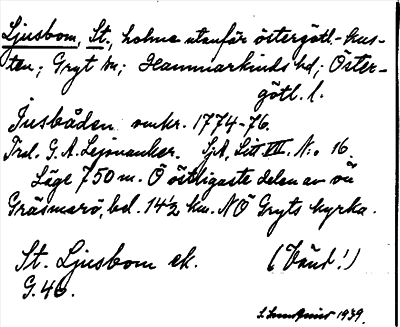 Ljusbom, St., holme utanför östergötl.-kus-
ten; Gryt sn; Hammarkinds hd; Öster-
götl. l.
Jusbåden omkr. 1774-76.
Trol. G. A. Lejonanker. SjA, Litt VII. N:o 16.
Läge 750 m. Ö östligaste delen av ön
Gräsmarö, bel. 14½ km. NÖ Gryts kyrka.
St. Ljusbom ek. (Vänd!)
G. 46.
1939.